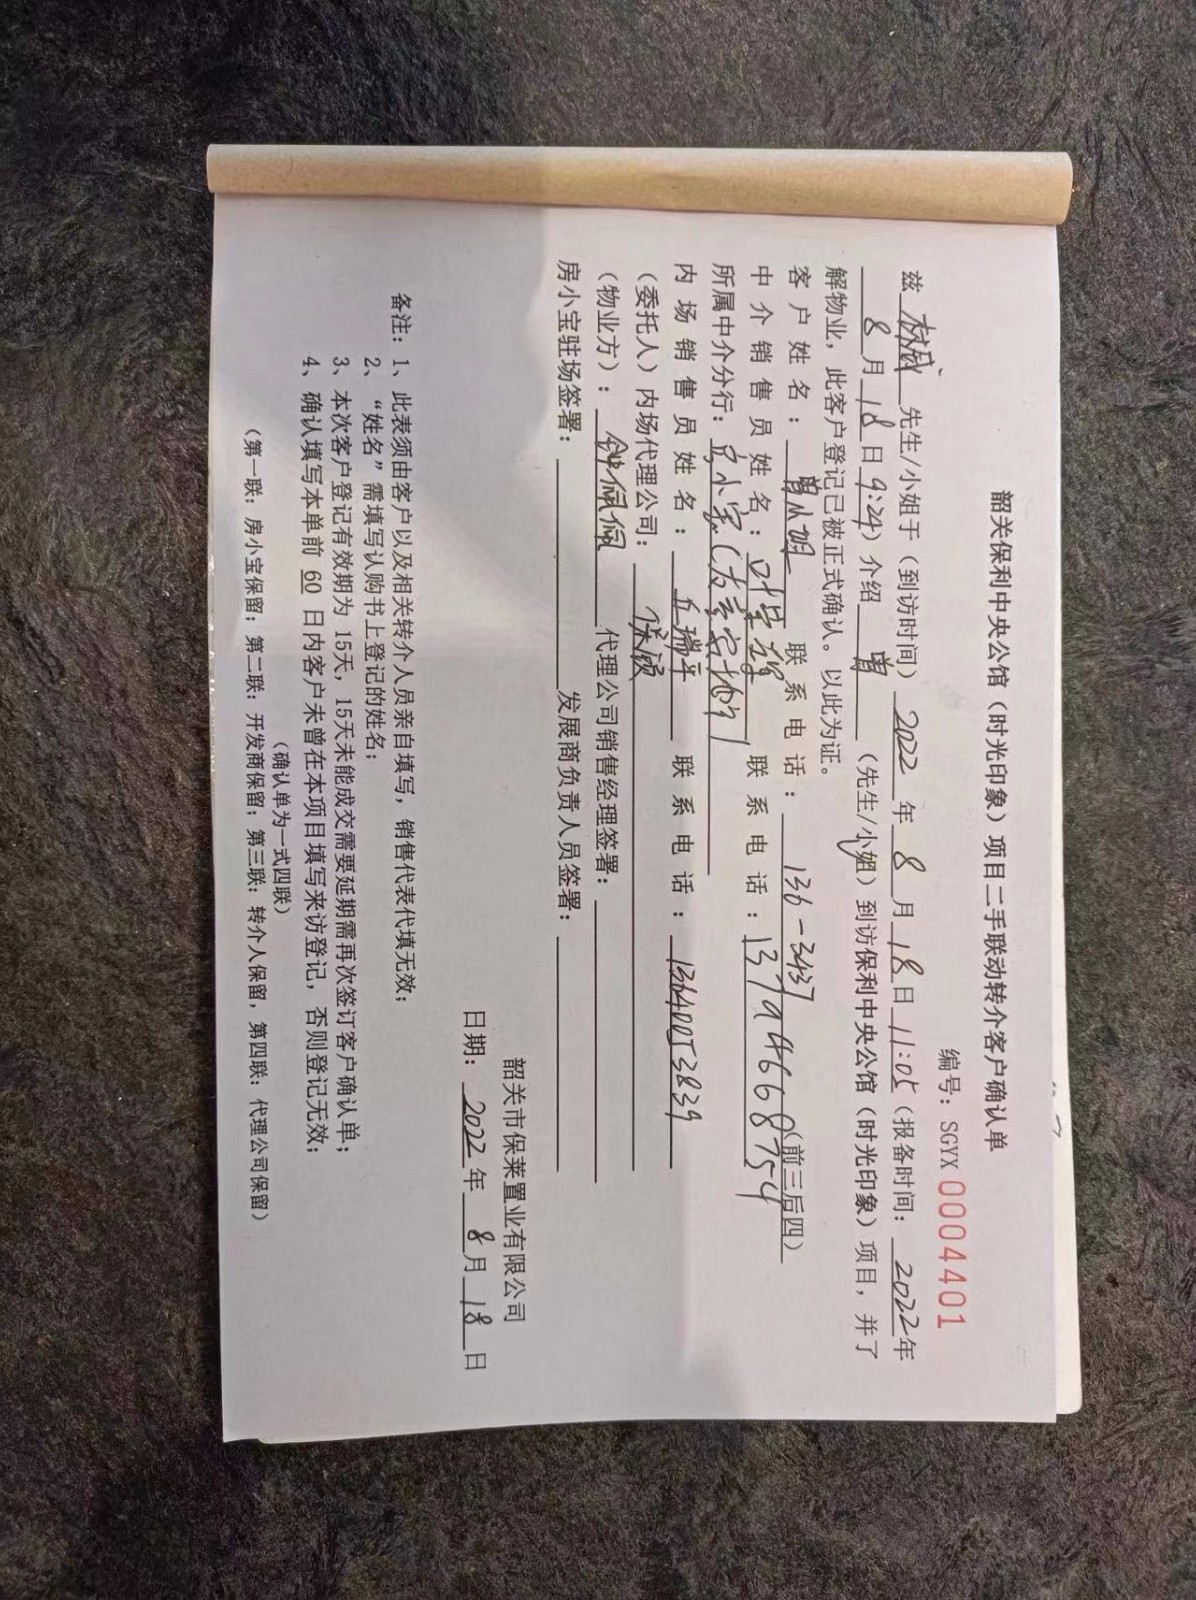 韶关保利中央公馆（时光印象）项目二手联动转介客户确认单
编号：SGYX 0004401
兹 林威 先生/小姐于（到访时间）2022 年 8 月 18 日 11:05（报备时间：2022 年
8 月 18 日 9:24）介绍 曾 （先生/小姐）到访保利中央公馆（时光印象）项目，并了
解物业，此客户登记已被正式确认。以此为证。
客户姓名： 联系电话：136-3437（前三后四）
中介销售员姓名：叶 联系电话：13794668754
所属中介分行：
内场销售员姓名：丘瑞平 联系电话：13640053839
（委托人）内场代理公司：
（物业方）：钟佩佩 代理公司销售经理签署：
房小宝驻场签署： 发展商负责人员签署：
韶关市保莱置业有限公司
日期：2022 年 8 月 18 日
备注：1、此表须由客户以及相关转介人员亲自填写，销售代表代填无效；
2、“姓名”需填写认购书上登记的姓名；
3、本次客户登记有效期为 15天，15天未能成交需要延期需再次签订客户确认单；
4、确认填写本单前 60 日内客户未曾在本项目填写来访登记，否则登记无效；
（确认单为一式四联）
（第一联：房小宝保留；第二联：开发商保留；第三联：转介人保留，第四联：代理公司保留）